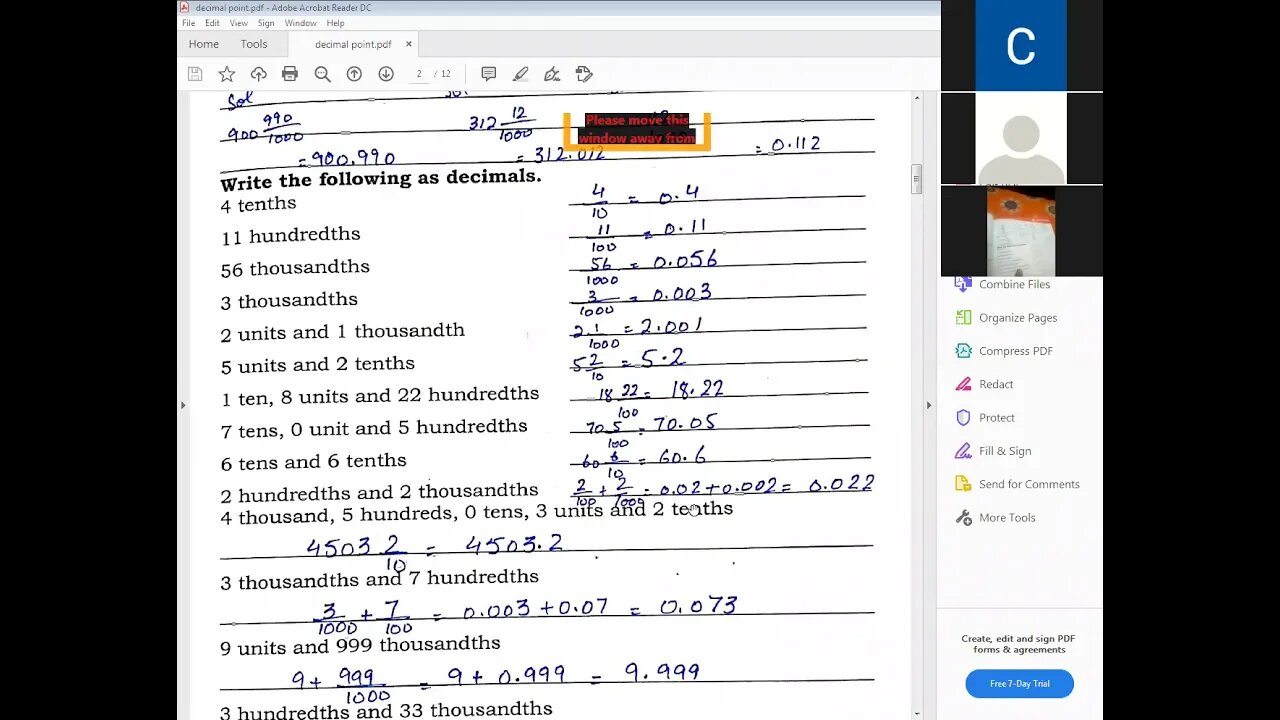 decimal point.pdf - Adobe Acrobat Reader DC
File Edit View Sign Window Help
Home Tools decimal point.pdf ×
2 / 12
Sol
900 990/1000 312 12/1000
= 900.990 = 312.012 = 0.112
Please move this
window away from
Write the following as decimals.
4 tenths 4/10 = 0.4
11 hundredths 11/100 = 0.11
56 thousandths 56/1000 = 0.056
3 thousandths 3/1000 = 0.003
2 units and 1 thousandth 2 1/1000 = 2.001
5 units and 2 tenths 5 2/10 = 5.2
1 ten, 8 units and 22 hundredths 18 22/100 = 18.22
7 tens, 0 unit and 5 hundredths 70 5/100 = 70.05
6 tens and 6 tenths 60 6/10 = 60.6
2 hundredths and 2 thousandths 2/100 + 2/1000 = 0.02 + 0.002 = 0.022
4 thousand, 5 hundreds, 0 tens, 3 units and 2 tenths
4503 2/10 = 4503.2
3 thousandths and 7 hundredths
3/1000 + 7/100 = 0.003 + 0.07 = 0.073
9 units and 999 thousandths
9 + 999/1000 = 9 + 0.999 = 9.999
3 hundredths and 33 thousandths
C
Combine Files
Organize Pages
Compress PDF
Redact
Protect
Fill & Sign
Send for Comments
More Tools
Create, edit and sign PDF
forms & agreements
Free 7-Day Trial